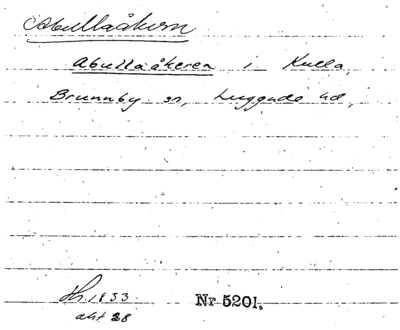 Abullaåkern
Abullaåkeren i Kulla,
Brunnby sn, Luggude hd,
1833 Nr 5201.
akt 28